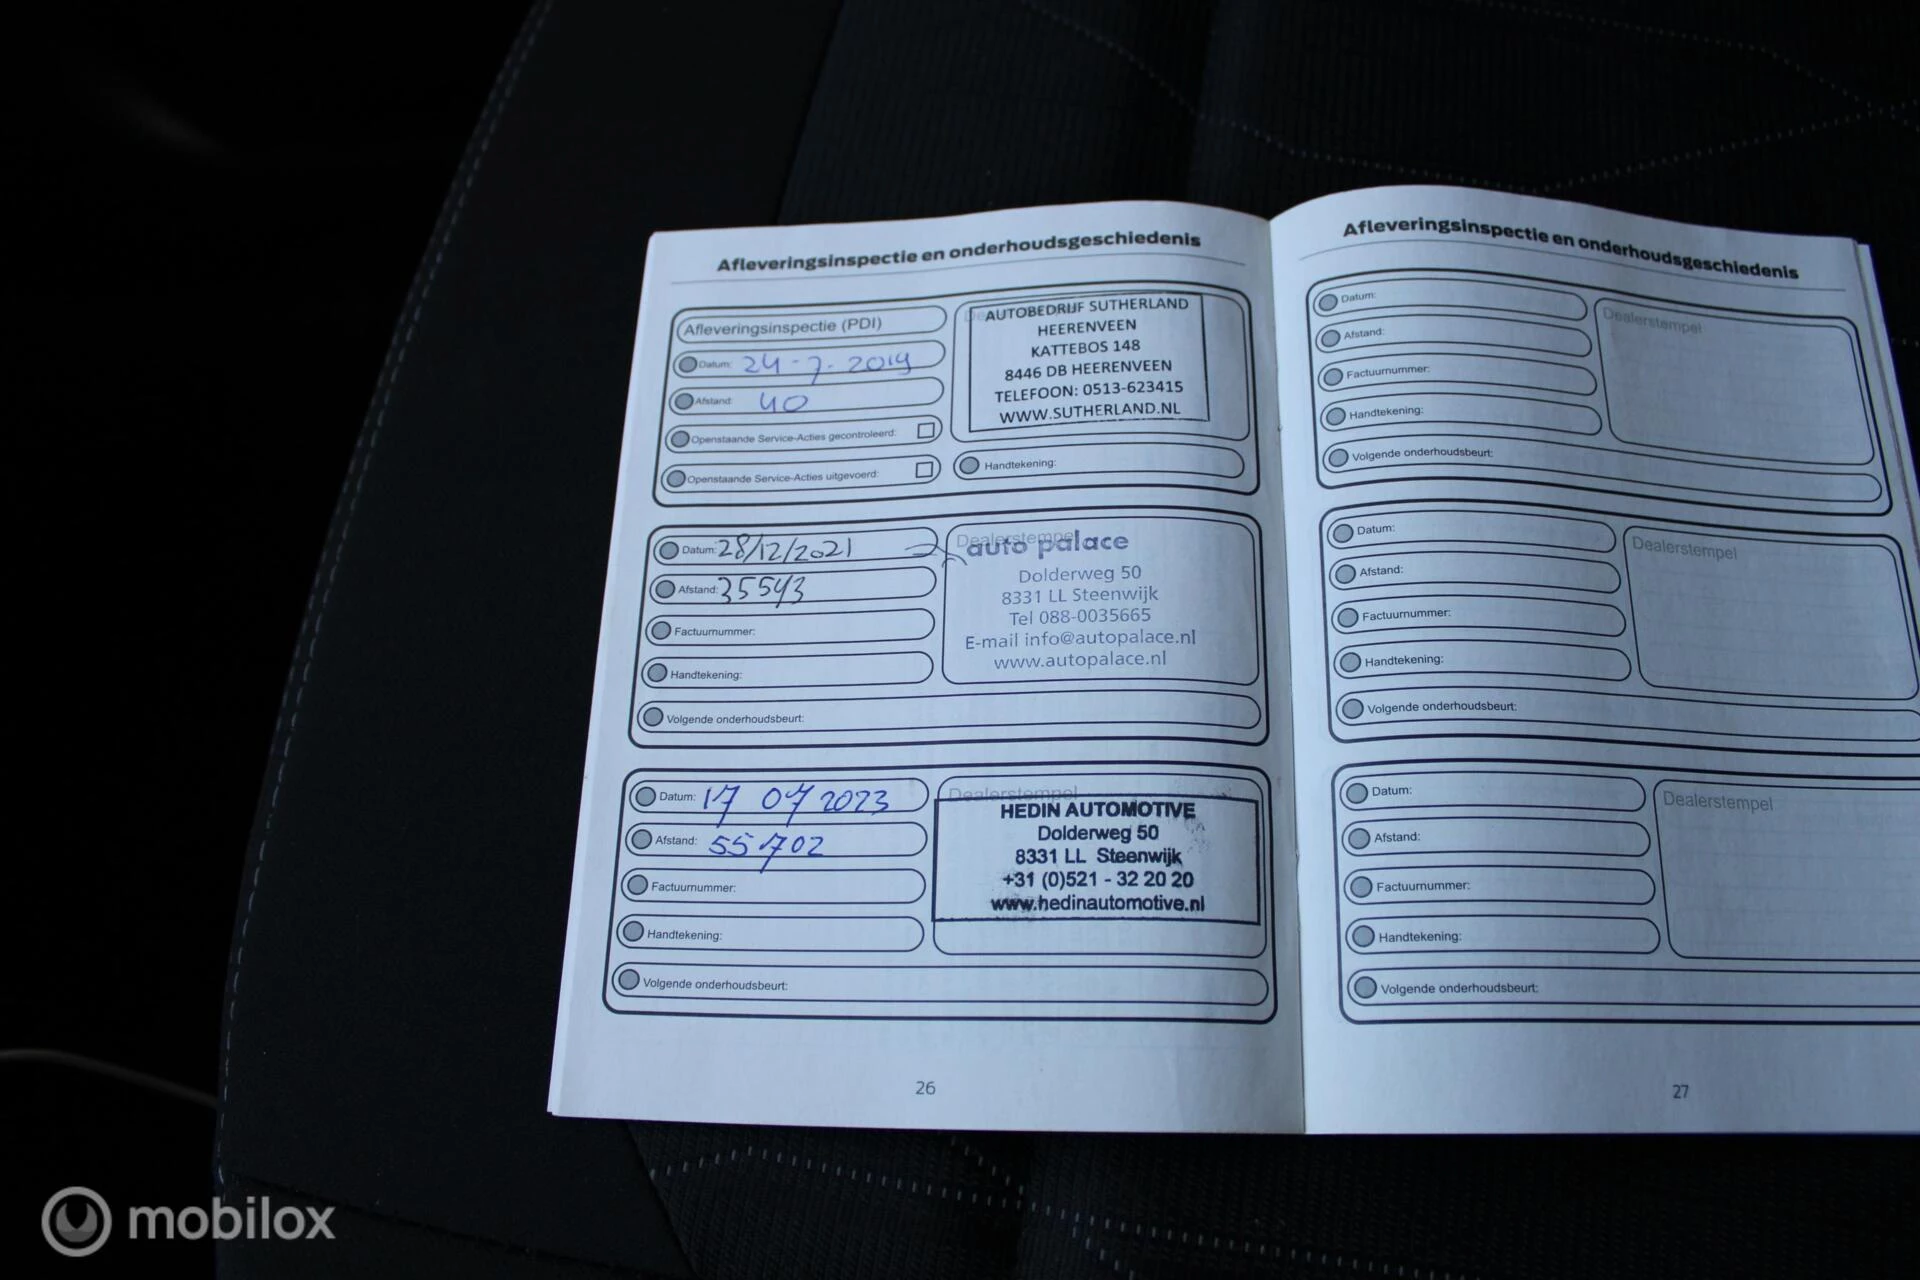 Afleveringsinspectie en onderhoudsgeschiedenis
Afleveringsinspectie (PDI)
Datum: 24-7-2019
Afstand: 40
Openstaande Service-Acties gecontroleerd:
Openstaande Service-Acties uitgevoerd:
AUTOBEDRIJF SUTHERLAND
HEERENVEEN
KATTEBOS 148
8446 DB HEERENVEEN
TELEFOON: 0513-623415
WWW.SUTHERLAND.NL
Handtekening:
Datum: 28/12/2021
Afstand: 35543
Factuurnummer:
Handtekening:
Dealerstempel
auto palace
Dolderweg 50
8331 LL Steenwijk
Tel 088-0035665
E-mail info@autopalace.nl
www.autopalace.nl
Volgende onderhoudsbeurt:
Datum: 17 07 2023
Afstand: 55702
Factuurnummer:
Handtekening:
Dealerstempel
HEDIN AUTOMOTIVE
Dolderweg 50
8331 LL Steenwijk
+31 (0)521 - 32 20 20
www.hedinautomotive.nl
Volgende onderhoudsbeurt:
26
Afleveringsinspectie en onderhoudsgeschiedenis
Datum:
Afstand:
Factuurnummer:
Handtekening:
Dealerstempel
Volgende onderhoudsbeurt:
Datum:
Afstand:
Factuurnummer:
Handtekening:
Dealerstempel
Volgende onderhoudsbeurt:
Datum:
Afstand:
Factuurnummer:
Handtekening:
Dealerstempel
Volgende onderhoudsbeurt:
27
mobilox